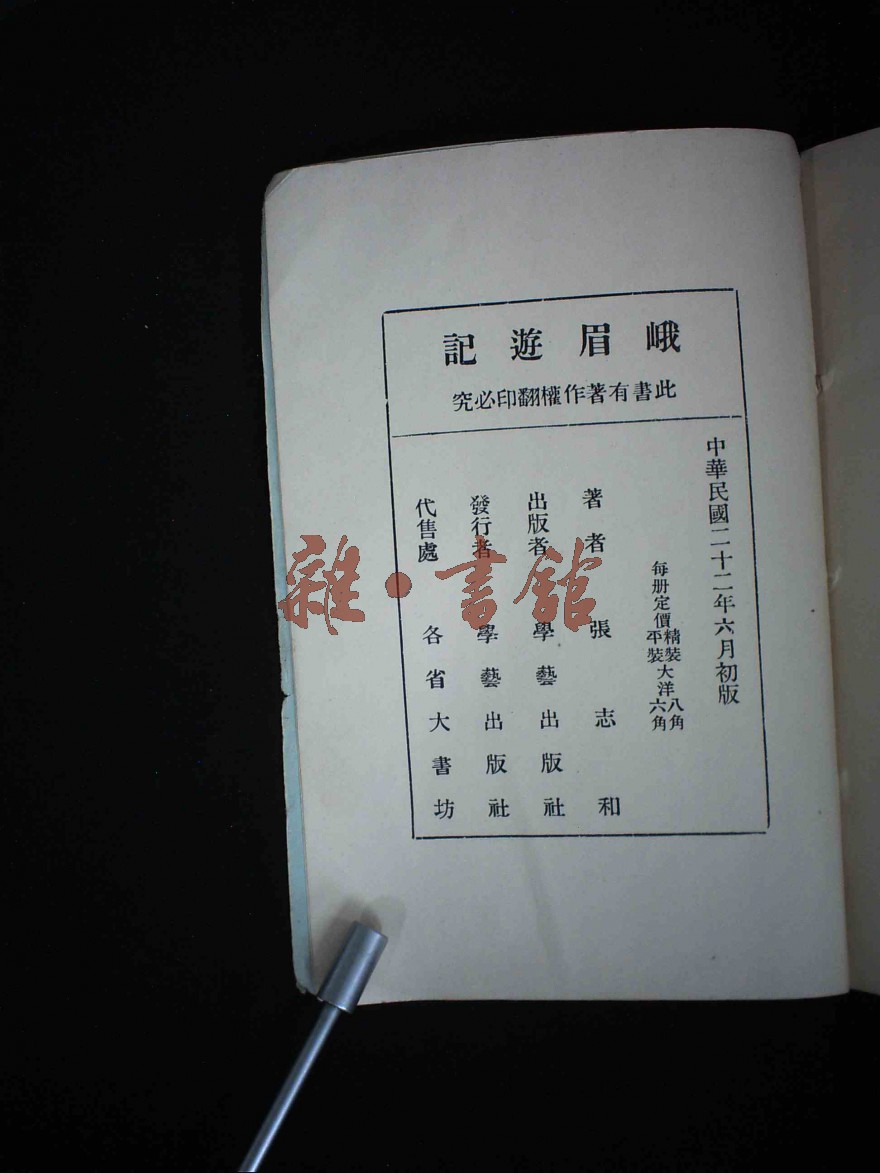 峨眉遊記
此書有著作權翻印必究
中華民國二十二年六月初版
每册定價精裝大洋八角
平裝六角
著者 張志和
出版者 學藝出版社
發行者 學藝出版社
代售處 各省大書坊
雜·書館